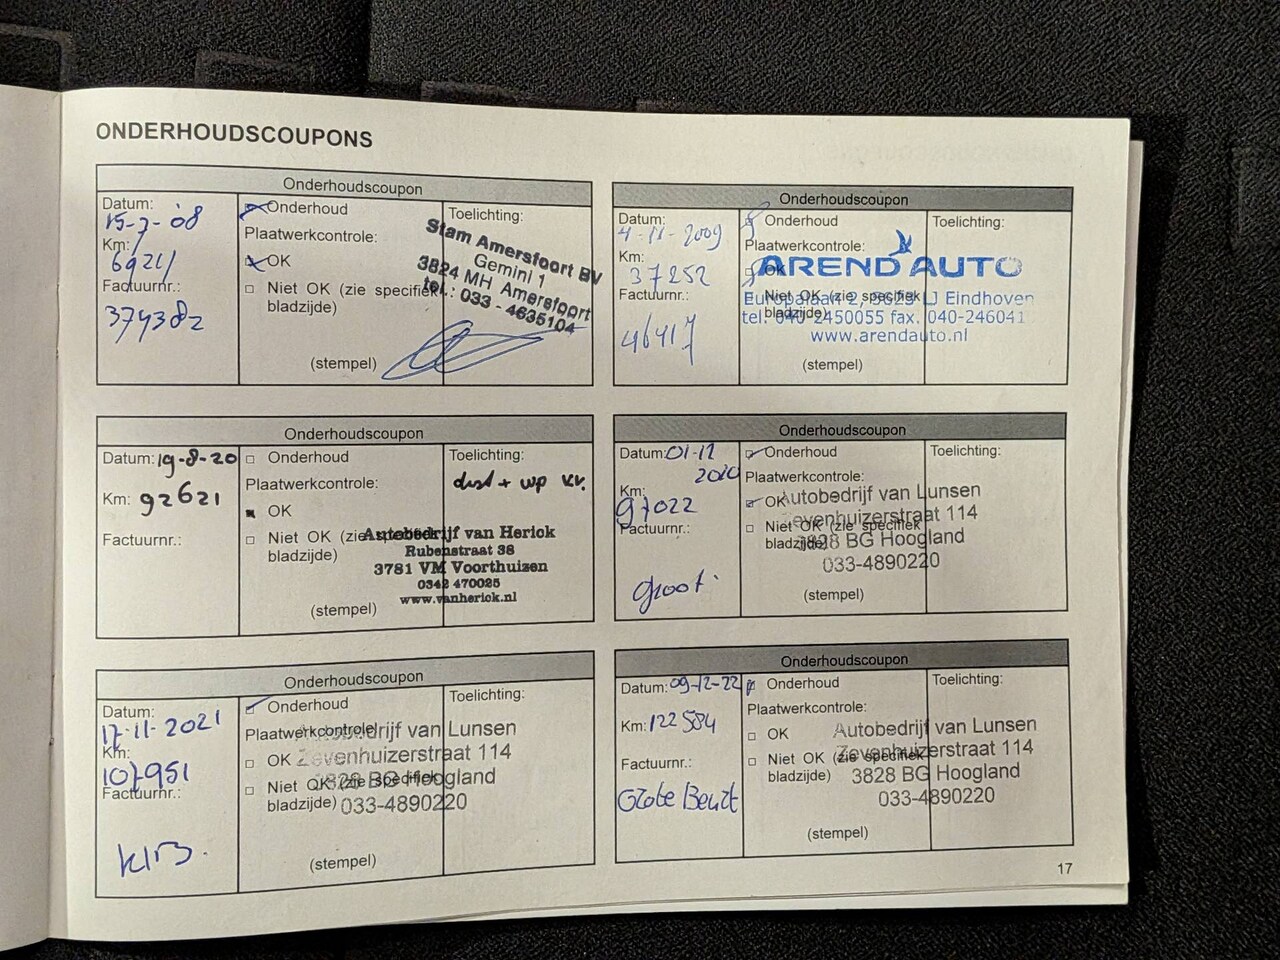 ONDERHOUDSCOUPONS
Onderhoudscoupon
Datum:
15-7-'08
Km:
6921
Factuurnr.:
374382
Onderhoud
Plaatwerkcontrole:
OK
Niet OK (zie specifiek
bladzijde)
(stempel)
Toelichting:
Stam Amersfoort BV
Gemini 1
3824 MH Amersfoort
tel.: 033 - 4635104
Onderhoudscoupon
Datum:
4-11-2009
Km:
37252
Factuurnr.:
46417
Onderhoud
Plaatwerkcontrole:
OK
Niet OK (zie specifiek
bladzijde)
(stempel)
Toelichting:
AREND AUTO
Europalaan 2, 5623 LJ Eindhoven
tel. 040-2450055 fax. 040-246041
www.arendauto.nl
Onderhoudscoupon
Datum: 19-8-20
Km: 92621
Factuurnr.:
Onderhoud
Plaatwerkcontrole:
OK
Niet OK (zie specifiek
bladzijde)
(stempel)
Toelichting:
dist + wp vv.
Autobedrijf van Herick
Rubensstraat 38
3781 VM Voorthuizen
0342 470025
www.vanherick.nl
Onderhoudscoupon
Datum: 01-12
2020
Km:
97022
Factuurnr.:
groot.
Onderhoud
Plaatwerkcontrole:
OK
Niet OK (zie specifiek
bladzijde)
(stempel)
Toelichting:
Autobedrijf van Lunsen
Zevenhuizerstraat 114
3828 BG Hoogland
033-4890220
Onderhoudscoupon
Datum:
17-11-2021
Km:
107951
Factuurnr.:
Onderhoud
Plaatwerkcontrole:
OK
Niet OK (zie specifiek
bladzijde)
(stempel)
Toelichting:
Autobedrijf van Lunsen
Zevenhuizerstraat 114
3828 BG Hoogland
033-4890220
Onderhoudscoupon
Datum: 09-12-22
Km: 122584
Factuurnr.:
Grote Beurt
Onderhoud
Plaatwerkcontrole:
OK
Niet OK (zie specifiek
bladzijde)
(stempel)
Toelichting:
Autobedrijf van Lunsen
Zevenhuizerstraat 114
3828 BG Hoogland
033-4890220
17